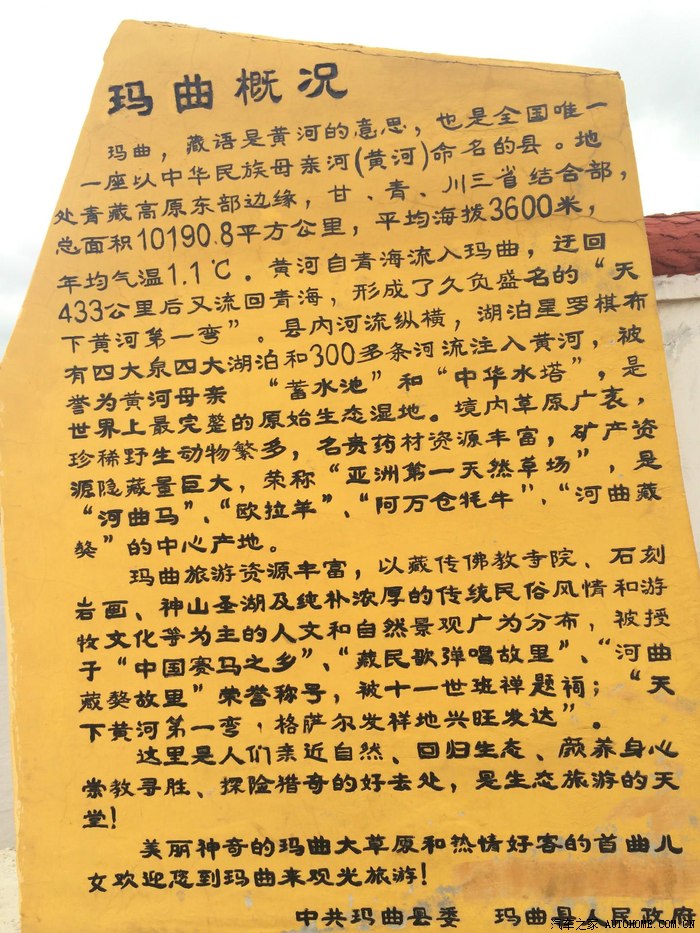 玛曲概况
玛曲，藏语是黄河的意思，也是全国唯一
一座以中华民族母亲河(黄河)命名的县。地
处青藏高原东部边缘，甘、青、川三省结合部，
总面积10190.8平方公里，平均海拔3600米，
年均气温1.1℃。黄河自青海流入玛曲，迂回
433公里后又流回青海，形成了久负盛名的“天
下黄河第一弯”。县内河流纵横，湖泊星罗棋布
有四大泉四大湖泊和300多条河流注入黄河，被
誉为黄河母亲 “蓄水池”和“中华水塔”，是
世界上最完整的原始生态湿地。境内草原广袤，
珍稀野生动物繁多，名贵药材资源丰富，矿产资
源隐藏量巨大，荣称“亚洲第一天然草场”，是
“河曲马”、“欧拉羊”、“阿万仓牦牛”、“河曲藏
獒”的中心产地。
玛曲旅游资源丰富，以藏传佛教寺院、石刻
岩画、神山圣湖及纯补浓厚的传统民俗风情和游
牧文化等为主的人文和自然景观广为分布，被授
于“中国赛马之乡”、“藏民歌弹唱故里”、“河曲
藏獒故里”荣誉称号，被十一世班禅题祠；“天
下黄河第一弯，格萨尔发祥地兴旺发达”。
这里是人们亲近自然、回归生态、颜养身心
崇教寻胜、探险猎奇的好去处，是生态旅游的天
堂！
美丽神奇的玛曲大草原和热情好客的首曲儿
女欢迎您到玛曲来观光旅游！
中共玛曲县委 玛曲县人民政府
汽车之家 AUTOHOME.COM.CN